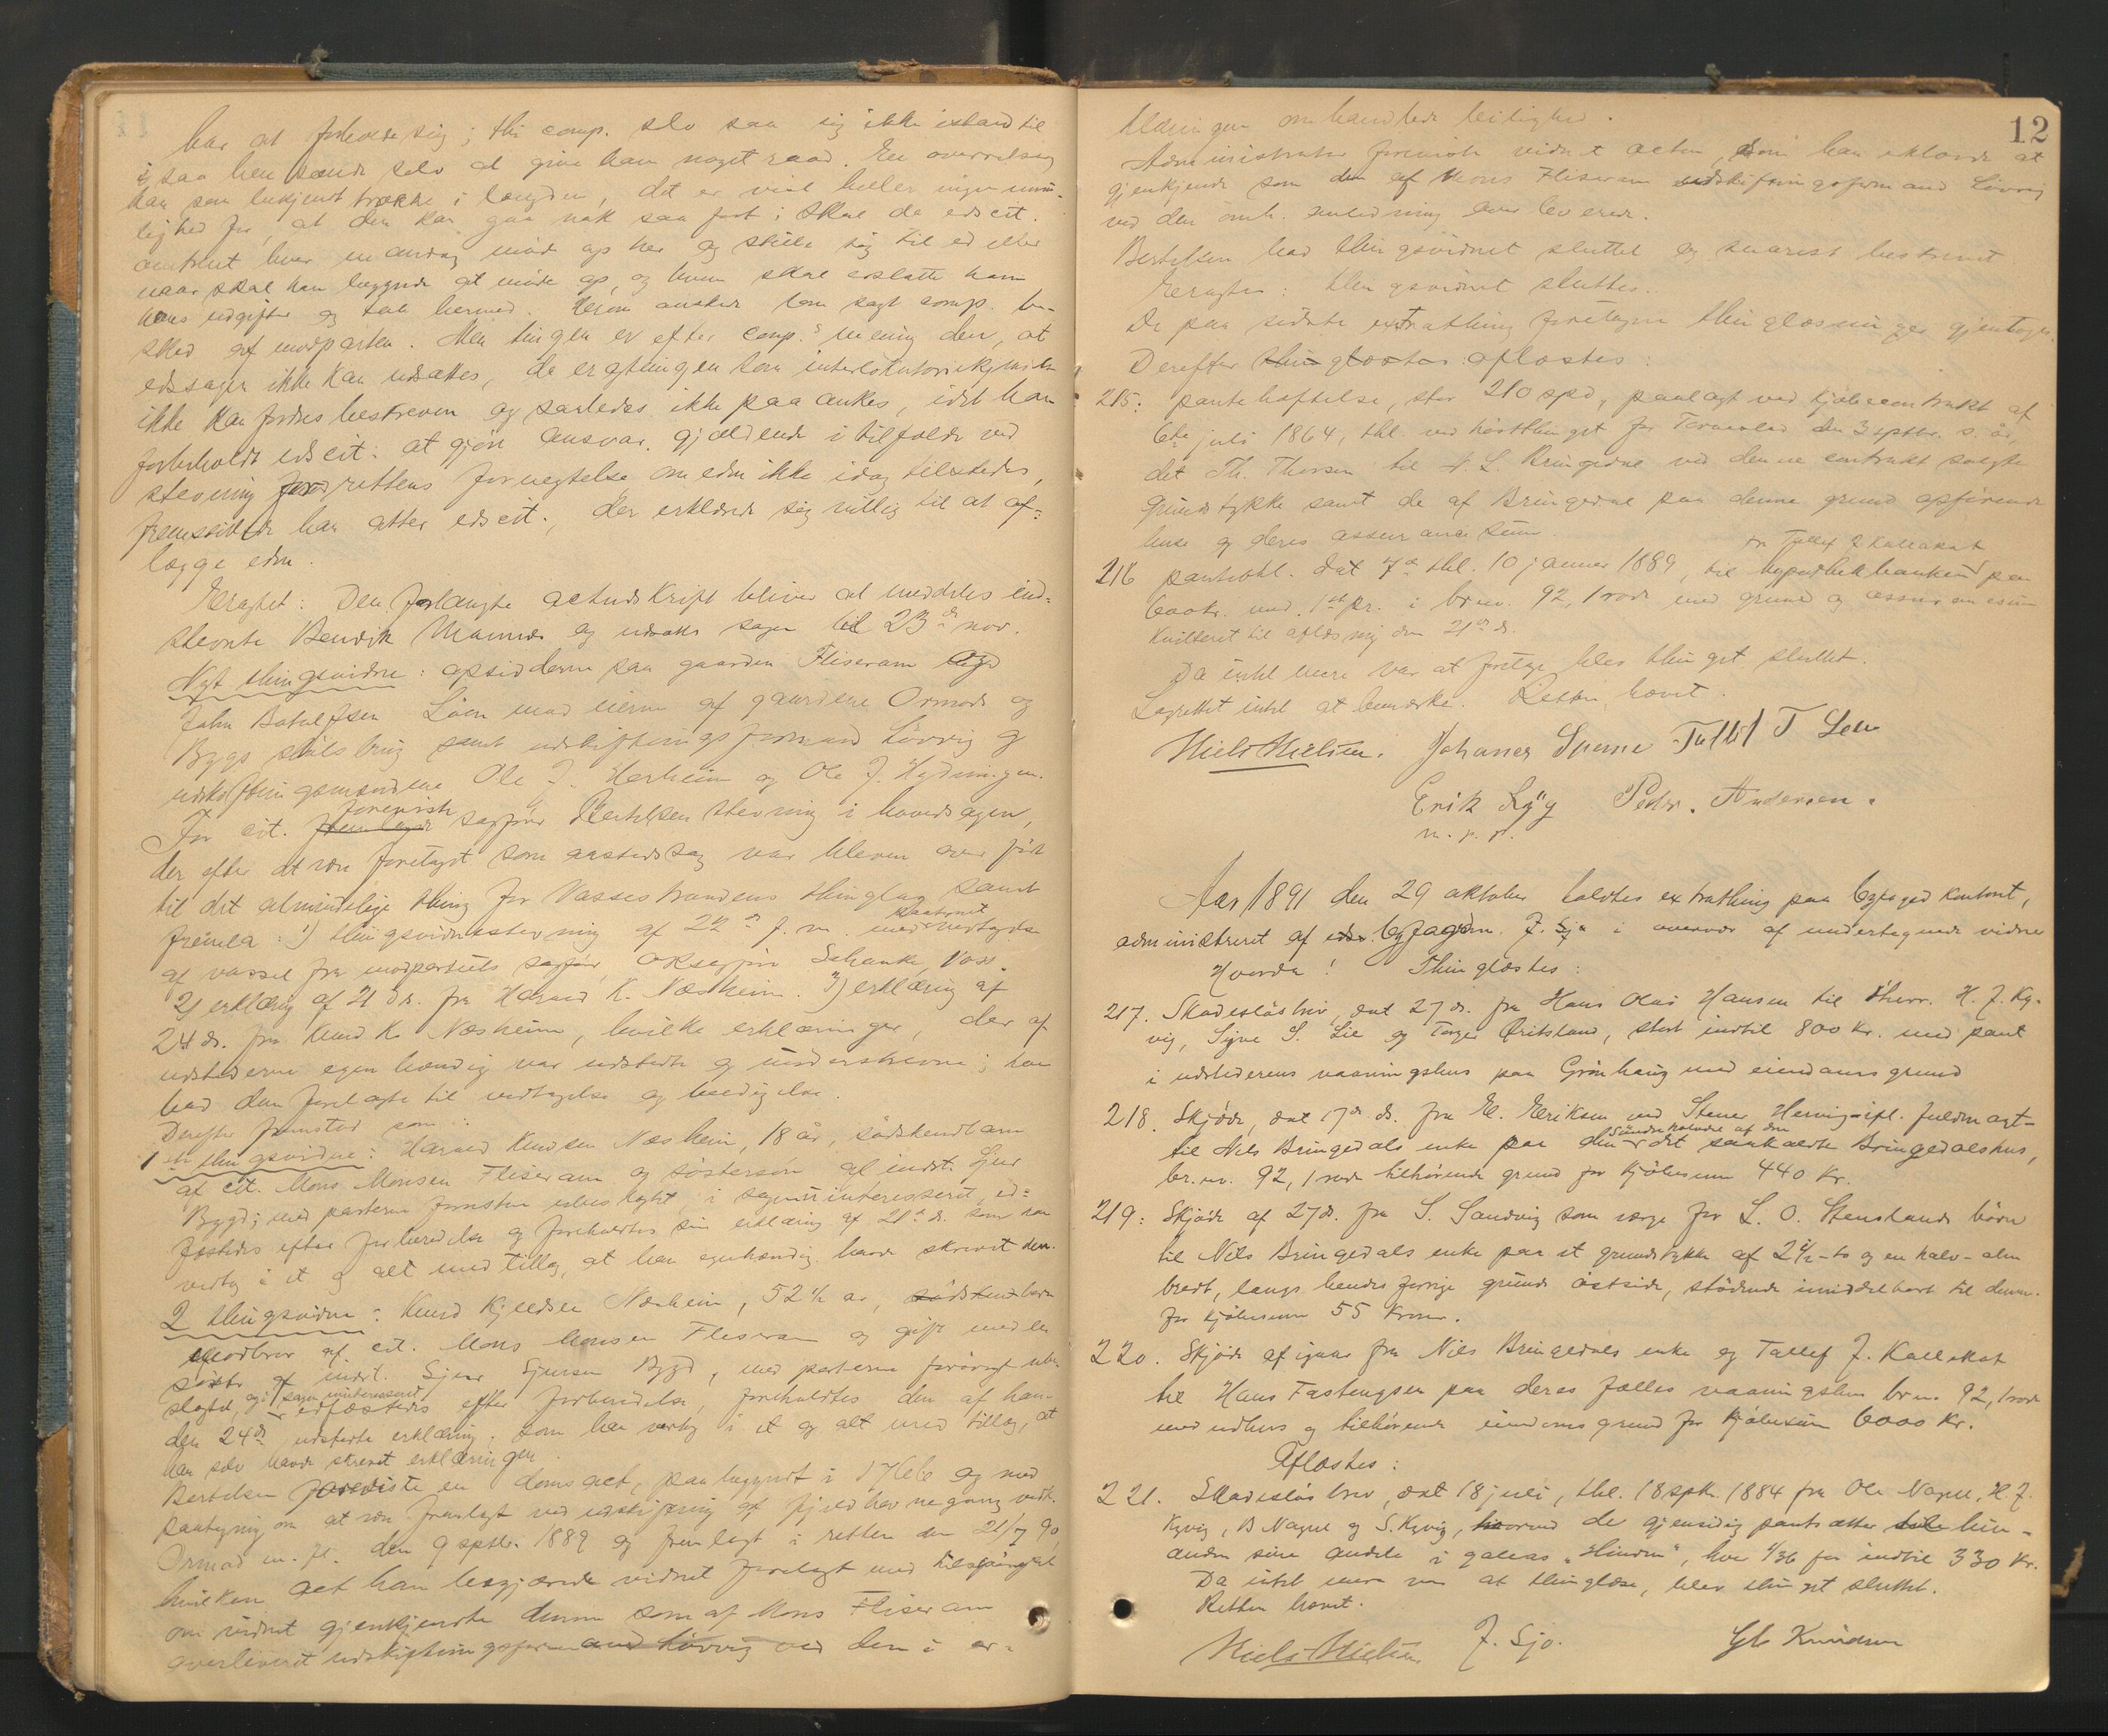 har at forholde sig; thi comp. selv saa sig ikke istand til
i saa henseende selv at give ham noget raad. En overreisning
kan som bekjendt trække i langdrag, det er vist heller ingen umu-
lighed for, at den kan gaa nok saa fort i. Skal da edscit.
omtrent hver en anden møde op her og stille sig til ed eller
naar skal han begynde at møde op, og hvem skal erstatte ham
hans udgifter og tab herved. Herom ønskes som sagt comp. be-
sked af modparten. Men tingen er efter comp.s mening den, at
edssagen ikke kan udsættes, da eragtningen som interlokutoriekjendelse
ikke kan fordres beskreven og saaledes ikke paaankes, idet han
forbeholdt edscit. at gjøre ansvar gjældende i tilfælde ved
stevning for rettens fornegtelse om eden ikke idag tilstedes,
fremstillede han atter edscit., der erklærede sig villig til at af-
lægge eden.
Eragtet: Den forlangte actudskrift bliver at meddeles ind-
stevnte Bendik Mannes og udsættes sagen til 23de nov.
Nyt thingsvidne: opsidderne paa gaarden Fliseram og
John Botolfsen Løen mod eierne af gaardene Ormod og
Bygd samt udskiftningsformand Løvvig og
udskiftningsmændene Ole J. Herheim og Ole J. Hydningen.
For cit. foreviste sagfører Bertelsen stevning i hovedsagen,
der efter at være foretaget som aastedssag var bleven overført
til det almindelige thing for Vassestrandens thinglag samt
fremla: 1) thingsvidnestevning af 22de f. m. med paategnet vedtagelse
af varsel fra modpartiets sagfører, oksagfører Schanke, Voss.
2) erklæring af 21 ds. fra Harald K. Næsheim. 3) erklæring af
24 ds. fra Knud K. Næsheim, hvilke erklæringer, der af
udstederne egenhændig var udstedte og underskrevne; han
bad dem forelagte til vedtagelse og beedigelse.
Derefter fremstod som:
1ste thingsvidne: Harald Knudsen Næsheim, 18 år, sødskendbarn
af cit. Mons Monsen Fliseram og søstersøn af indst. Sjur
Bygd; med parterne forøvrigt ubeslægtet, i sagen uinteresseret, ed-
fæstedes efter forberedelse og foreholdtes sin erklæring af 21de ds. som han
vedtog i et og alt med tillæg, at han egenhændig havde skrevet den.
2 thingsvidne: Knud Kjeldsen Næsheim, 52½ ar,
morbror af cit. Mons Monsen Fliseram og gift med en
søster af indst. Sjur Sjursen Bygd, med parterne forøvrigt ube-
slægtet, og i sagen uinteresseret, edfæstedes efter forberedelse, foreholdtes den af ham
den 24 ds udstedte erklæring, som han vedtog i et og alt med tillæg, at
han selv havde skrevet erklæringen.
Bertelsen foreviste en domsact, paabegyndt i 1766 og med
paategning om at være fremlagt ved udskiftning af fjeldhavnegang vedk.
Ormod m. fl. den 9 septbr. 1889 og fremlagt i retten den 21/7 90,
hvilken act han begjærede vidnet forelagt med tilspørgsel
om vidnet gjenkjendte denne som af Mons Fliseram
overleveret udskiftningsformand Løvvig ved den i er-
12
klæringen omhandlede leilighed.
Administrator foreviste vidnet acten, som han erklærede at
gjenkjende som den af Mons Fliseram udskiftningsformand Løvvig
ved den omh. anledning overleverede.
Bertelsen bad thingsvidnet sluttet og snarest beskrevet
Eragtet: thingsvidnet sluttes.
De paa sidste extrathing foretagne thinglæsninger gjentoges.
Derefter thinglæstes: aflæstes:
215: pantehæftelse, stor 210 spd., paalagt ved kjøbecontrakt af
6te juli 1864, thl. ved høstthinget for Torvested den 3 septbr. s. år,
det Th. Thorsen til N. L. Bringedal ved denne contrakt solgte
grundstykke samt de af Bringedal paa denne grund opførende
huse og deres assurancesum.
216 panteobl. dat 7de thl. 10 januar 1889, fra Tallef J. Kallekat til hypothekbanken paa
600 kr. med 1ste pr. i br.nr. 92, 1 rode med grund og assurancesum
Kvitteret til aflæsning den 21de ds.
Da intet mere var at foretage blev thinget sluttet.
Lagrettet intet at bemærke. Retten hævet.
Niels Nielsen. Johanes Sperne Tallef T Lee
Erik Løÿ Peder. Andersen.
m. p. p.
Aar 1891 den 29 oktober holdtes extrathing paa byfoged kontoret,
administreret af edsv. byfogedfm. J. Sjo i overvær af undertegnede vidner
Hvorda! Thinglæstes:
217. Skadesløsbrev, dat 27 ds. fra Hans Olai Hansen til Sherr. H. J. Ky-
vig, Signe S. Lie og Torger Qvitsland, stort indtil 800 kr. med pant
i udstederens vaaningshus paa Grønhaug med eiendoms grund
218. Skjøde, dat 17de ds. fra E. Eriksen ved Stener Hervig ifl. fuldmagt
til Nils Bringedals enke paa den søndre halvdel af den det saakaldte Bringedalshus,
br.nr. 92, 1 rode tilhørende grund for kjøbesum 440 kr.
219: Skjøde af 27 ds. fra S. Sandvig som værge for L. O. Stenslands børn
til Nils Bringedals enke paa et grundstykke af 2½ - to og en halv - alen
bredt, langs hendes forrige grunds østside, stødende umiddelbart til denne
for kjøbesum 55 kroner.
220. Skjøde af igaar fra Nils Bringedals enke og Tallef J. Kallekat
til Hans Fastengsen paa deres fælles vaaningshus br.nr. 92, 1 rode
med udhus og tilhørende eiendoms grund for kjøbesum 6000 kr.
Aflæstes:
221. Skadesløsbrev, dat 18 juli, thl. 18 septr. 1884 fra Ole Nagel, H. J.
Kyvig, B Nagel og S. Kyvig, hvorved de gjensidig pantsætter hin-
anden sine andele i galeas "Hinden", hver 1/36 for indtil 330 kr.
Da intet mere var at thinglæse, blev thinget sluttet.
Retten hævet.
Niels Nielsen J. Sjo. Gb Knudsen